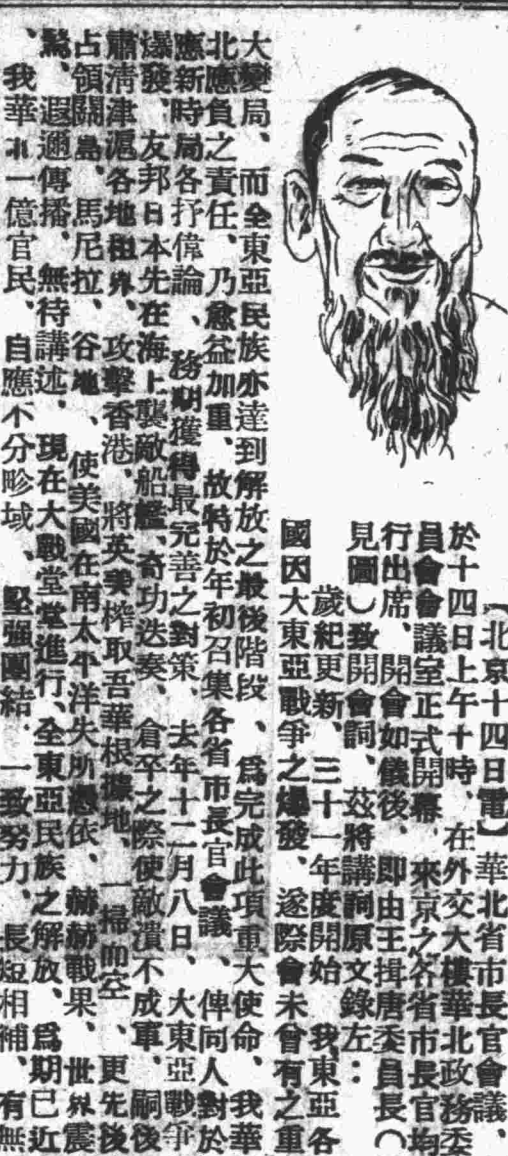 【北京十四日電】華北省市長官會議、
於十四日上午十時、在外交大樓華北政務委
員會會議室正式開幕、來京之各省市長官均
行出席、開會如儀後、即由王揖唐委員長（
見圖）致開會詞、茲將講詞原文錄左：
歲紀更新、三十一年度開始、我東亞各
國因大東亞戰爭之爆發、遂際會未曾有之重
大變局、而全東亞民族亦達到解放之最後階段、爲完成此項重大使命、我華
北應負之責任、乃愈益加重、故特於年初召集各省市長官會議、俾同人對於
應新時局各抒偉論、務期獲得最完善之對策、去年十二月八日、大東亞戰爭
爆發、友邦日本先在海上襲敵船艦、奇功迭奏、倉卒之際使敵潰不成軍、嗣後
肅清津滬各地租界、攻擊香港、將英美榨取吾華根據地、一掃而空、更先後
占領關島、馬尼拉、谷地、使美國在南太平洋失所憑依、赫赫戰果、世界震
驚、遐邇傳播、無待講述、現在大戰堂堂進行、全東亞民族之解放、爲期已近
、我華北一億官民、自應不分畛域、堅强團結、一致努力、長短相補、有無